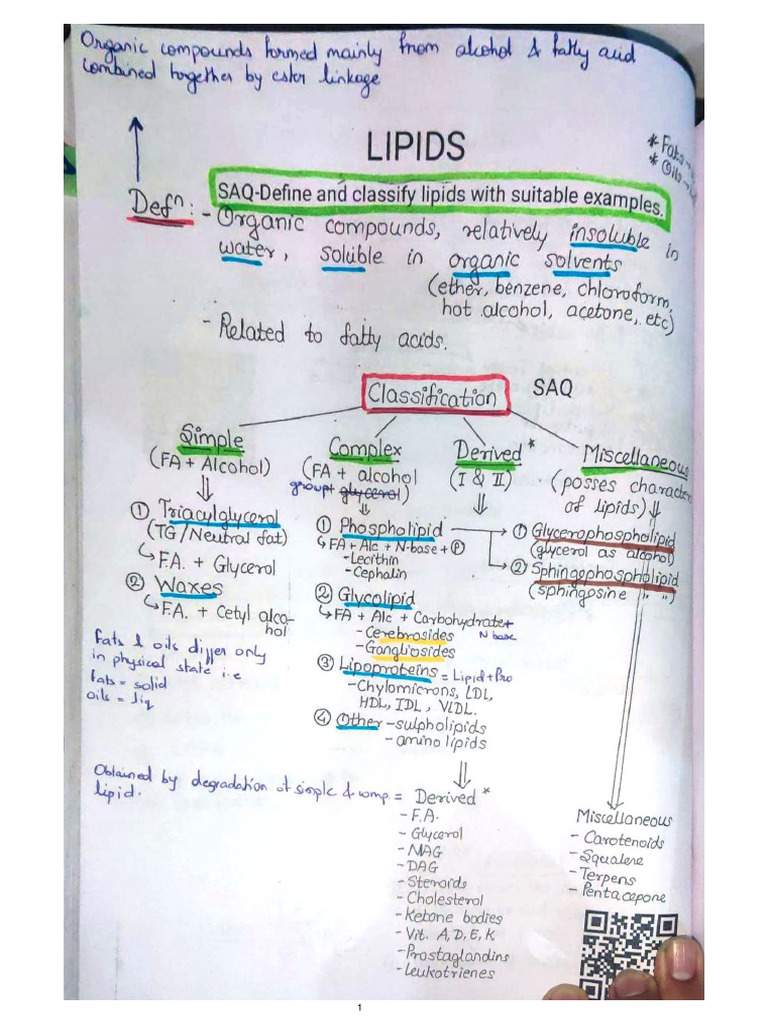 Organic compounds formed mainly from alcohol & fatty acid
combined together by ester linkage
LIPIDS
* Fats →
* Oils →
SAQ-Define and classify lipids with suitable examples.
Defⁿ :- Organic compounds, relatively insoluble in
water, soluble in organic solvents
(ether, benzene, chloroform,
hot alcohol, acetone, etc)
- Related to fatty acids.
Classification SAQ
Simple
(FA + Alcohol)
① Triacylglycerol
(TG/Neutral fat)
↳ F.A. + Glycerol
② Waxes
↳ F.A. + Cetyl alco-
hol
Fats & oils differ only
in physical state i.e
fats = solid
oils = liq
Complex
(FA + alcohol
group+ glycerol)
① Phospholipid
↳ FA + Alc + N-base + Ⓟ
- Lecithin
- Cephalin
② Glycolipid
↳ FA + Alc + Carbohydrate+
N base
- Cerebrosides
- Gangliosides
③ Lipoproteins = Lipid + Pro
- Chylomicrons, LDL,
HDL, IDL, VLDL.
④ Other - sulpholipids
- amino lipids
Derived*
(I & II)
① Glycerophospholipid
(glycerol as alcohol)
② Sphingophospholipid
(sphingosine " ")
Miscellaneous
(posses character
of lipids)
Obtained by degradation of simple & comp = Derived*
lipid.
- F.A.
- Glycerol
- MAG
- DAG
- Steroids
- Cholesterol
- Ketone bodies
- Vit. A, D, E, K
- Prostaglandins
- Leukotrienes
Miscellaneous
- Carotenoids
- Squalene
- Terpens
- Pentacepone
1